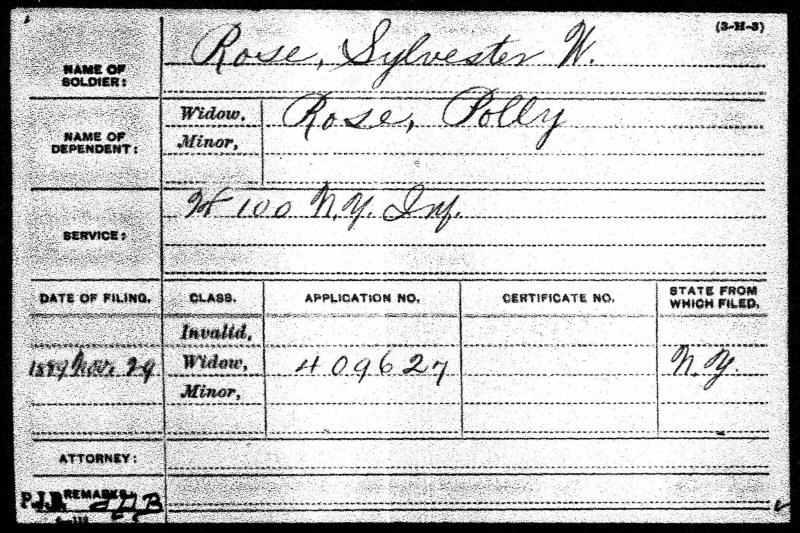 (3-H-3)
NAME OF SOLDIER: Rose, Sylvester W.
NAME OF DEPENDENT: Widow, Rose, Polly
Minor,
SERVICE: H 100 N.Y. Inf.
DATE OF FILING. CLASS. APPLICATION NO. CERTIFICATE NO. STATE FROM WHICH FILED.
Invalid,
1889 Nov. 29 Widow, 409627 N.Y.
Minor,
ATTORNEY:
REMARKS: